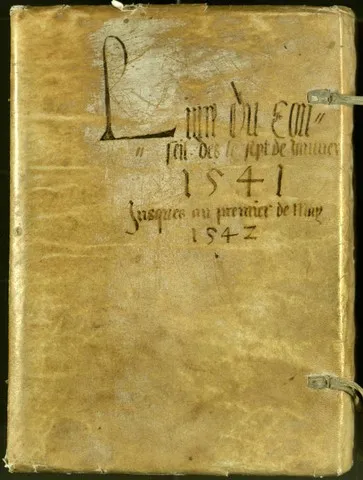 Livre du Con"
" seil des le sept de Janvier
1541
Jusques au premier de May
1542